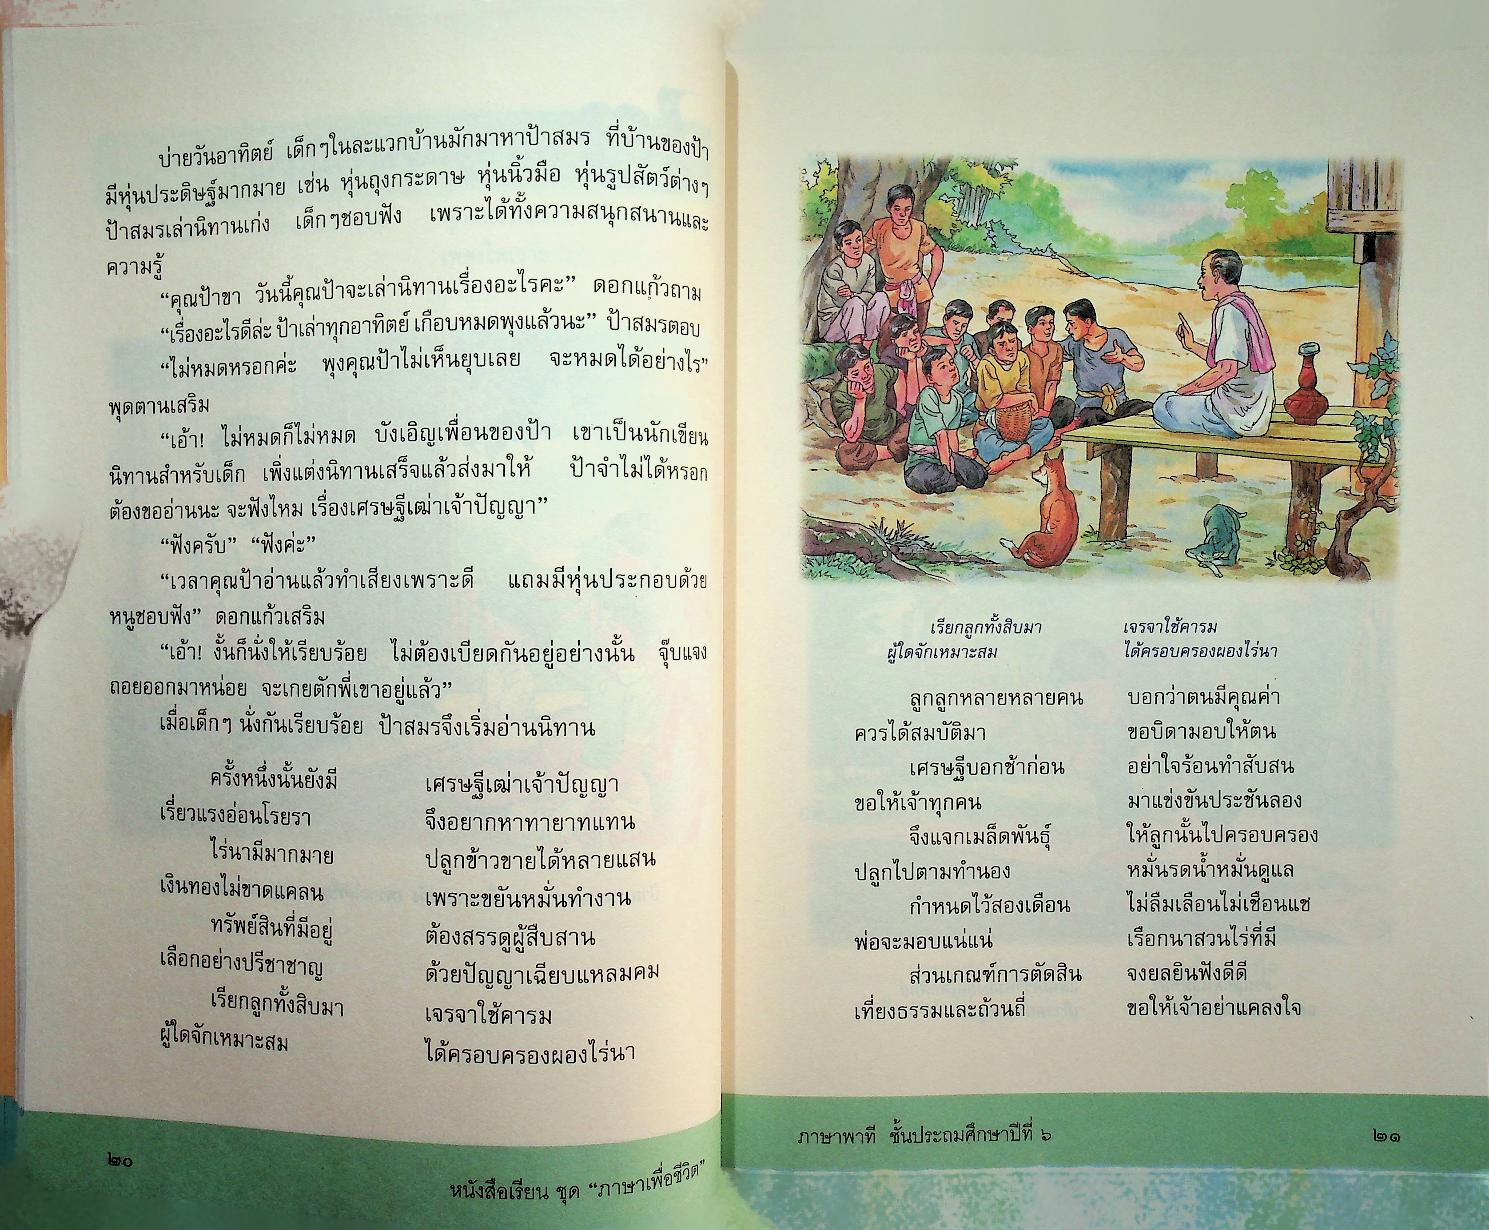 บ่ายวันอาทิตย์ เด็กๆในละแวกบ้านมักมาหาป้าสมร ที่บ้านของป้า
มีหุ่นประดิษฐ์มากมาย เช่น หุ่นถุงกระดาษ หุ่นนิ้วมือ หุ่นรูปสัตว์ต่างๆ
ป้าสมรเล่านิทานเก่ง เด็กๆชอบฟัง เพราะได้ทั้งความสนุกสนานและ
ความรู้
“คุณป้าขา วันนี้คุณป้าจะเล่านิทานเรื่องอะไรคะ” ดอกแก้วถาม
“เรื่องอะไรดีล่ะ ป้าเล่าทุกอาทิตย์ เกือบหมดพุงแล้วนะ” ป้าสมรตอบ
“ไม่หมดหรอกค่ะ พุงคุณป้าไม่เห็นยุบเลย จะหมดได้อย่างไร”
พุดตานเสริม
“เอ้า! ไม่หมดก็ไม่หมด บังเอิญเพื่อนของป้า เขาเป็นนักเขียน
นิทานสำหรับเด็ก เพิ่งแต่งนิทานเสร็จแล้วส่งมาให้ ป้าจำไม่ได้หรอก
ต้องขออ่านนะ จะฟังไหม เรื่องเศรษฐีเฒ่าเจ้าปัญญา”
“ฟังครับ” “ฟังค่ะ”
“เวลาคุณป้าอ่านแล้วทำเสียงเพราะดี แถมมีหุ่นประกอบด้วย
หนูชอบฟัง” ดอกแก้วเสริม
“เอ้า! งั้นก็นั่งให้เรียบร้อย ไม่ต้องเบียดกันอยู่อย่างนั้น จุ๊บแจง
ถอยออกมาหน่อย จะเกยตักพี่เขาอยู่แล้ว”
เมื่อเด็กๆ นั่งกันเรียบร้อย ป้าสมรจึงเริ่มอ่านนิทาน
ครั้งหนึ่งนั้นยังมี เศรษฐีเฒ่าเจ้าปัญญา
เรี่ยวแรงอ่อนโรยรา จึงอยากหาทายาทแทน
ไร่นามีมากมาย ปลูกข้าวขายได้หลายแสน
เงินทองไม่ขาดแคลน เพราะขยันหมั่นทำงาน
ทรัพย์สินที่มีอยู่ ต้องสรรดูผู้สืบสาน
เลือกอย่างปรีชาชาญ ด้วยปัญญาเฉียบแหลมคม
เรียกลูกทั้งสิบมา เจรจาใช้คารม
ผู้ใดจักเหมาะสม ได้ครอบครองผองไร่นา
๒๐
หนังสือเรียน ชุด “ภาษาเพื่อชีวิต”
เรียกลูกทั้งสิบมา เจรจาใช้คารม
ผู้ใดจักเหมาะสม ได้ครอบครองผองไร่นา
ลูกลูกหลายหลายคน บอกว่าตนมีคุณค่า
ควรได้สมบัติมา ขอบิดามอบให้ตน
เศรษฐีบอกช้าก่อน อย่าใจร้อนทำสับสน
ขอให้เจ้าทุกคน มาแข่งขันประชันลอง
จึงแจกเมล็ดพันธุ์ ให้ลูกนั้นไปครอบครอง
ปลูกไปตามทำนอง หมั่นรดน้ำหมั่นดูแล
กำหนดไว้สองเดือน ไม่ลืมเลือนไม่เชือนแช
พ่อจะมอบแน่แน่ เรือกนาสวนไร่ที่มี
ส่วนเกณฑ์การตัดสิน จงยลยินฟังดีดี
เที่ยงธรรมและถ้วนถี่ ขอให้เจ้าอย่าแคลงใจ
ภาษาพาที ชั้นประถมศึกษาปีที่ ๖
๒๑